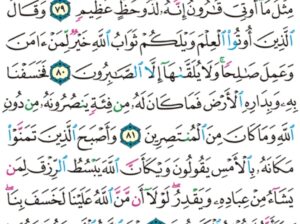 مِثْلَ مَا أُوتِيَ قَٰرُونُ إِنَّهُۥ لَذُو حَظٍّ عَظِيمٍ ٧٩ وَقَالَ
الَّذِينَ أُوتُوا۟ الْعِلْمَ وَيْلَكُمْ ثَوَابُ اللَّهِ خَيْرٌ لِّمَنْ ءَامَنَ
وَعَمِلَ صَٰلِحًا وَلَا يُلَقَّىٰهَا إِلَّا الصَّٰبِرُونَ ٨٠ فَخَسَفْنَا
بِهِۦ وَبِدَارِهِ الْأَرْضَ فَمَا كَانَ لَهُۥ مِن فِئَةٍ يَنصُرُونَهُۥ مِن دُونِ
اللَّهِ وَمَا كَانَ مِنَ الْمُنتَصِرِينَ ٨١ وَأَصْبَحَ الَّذِينَ تَمَنَّوْا۟
مَكَانَهُۥ بِالْأَمْسِ يَقُولُونَ وَيْكَأَنَّ اللَّهَ يَبْسُطُ الرِّزْقَ لِمَن
يَشَآءُ مِنْ عِبَادِهِۦ وَيَقْدِرُ لَوْلَآ أَن مَّنَّ اللَّهُ عَلَيْنَا لَخَسَفَ بِنَا